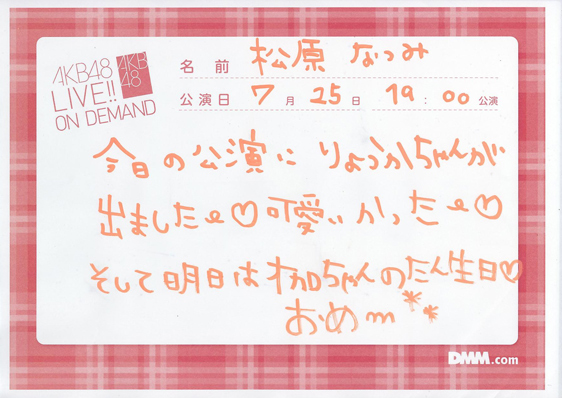 AKB48
LIVE!!
ON DEMAND
AKB
48
名前 松原 なつみ
公演日 7月25日 19:00公演
今日の公演に りょうかちゃんが
出ましたe♡可愛いかったe♡
そして明日はオカロちゃんのたん生日♡
おめm**
DMM.com